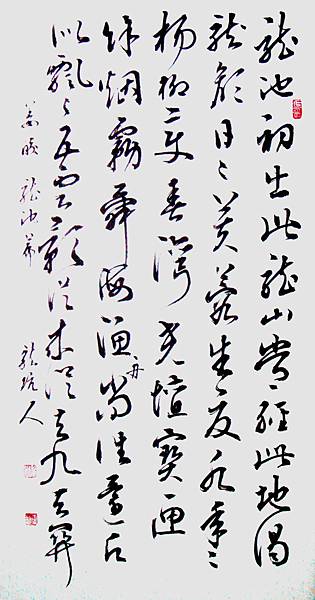 龍池初出此龍山常經此地謁
龍顏日々芙蓉生夏水年々
楊柳變春灣堯壇寶匣
餘烟霧舜海漁舟尚往還願
似飄々五雲影從來從去九天關
姜晞龍池篇 龍坑人